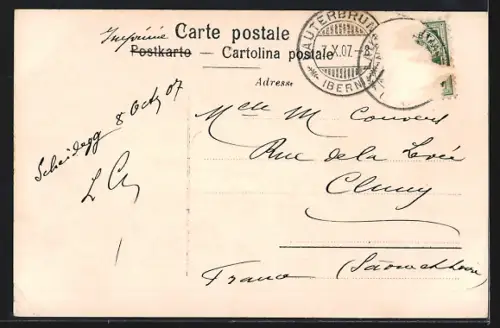 Imprimé Carte postale
Postkarte - Cartolina postale
LAUTERBRUN
7.X.07.
(BERN
Adresse
Scheidegg 8 Octy 07
Melle M Convert
Rue de la
Cluny
(Saone et Loire)
France